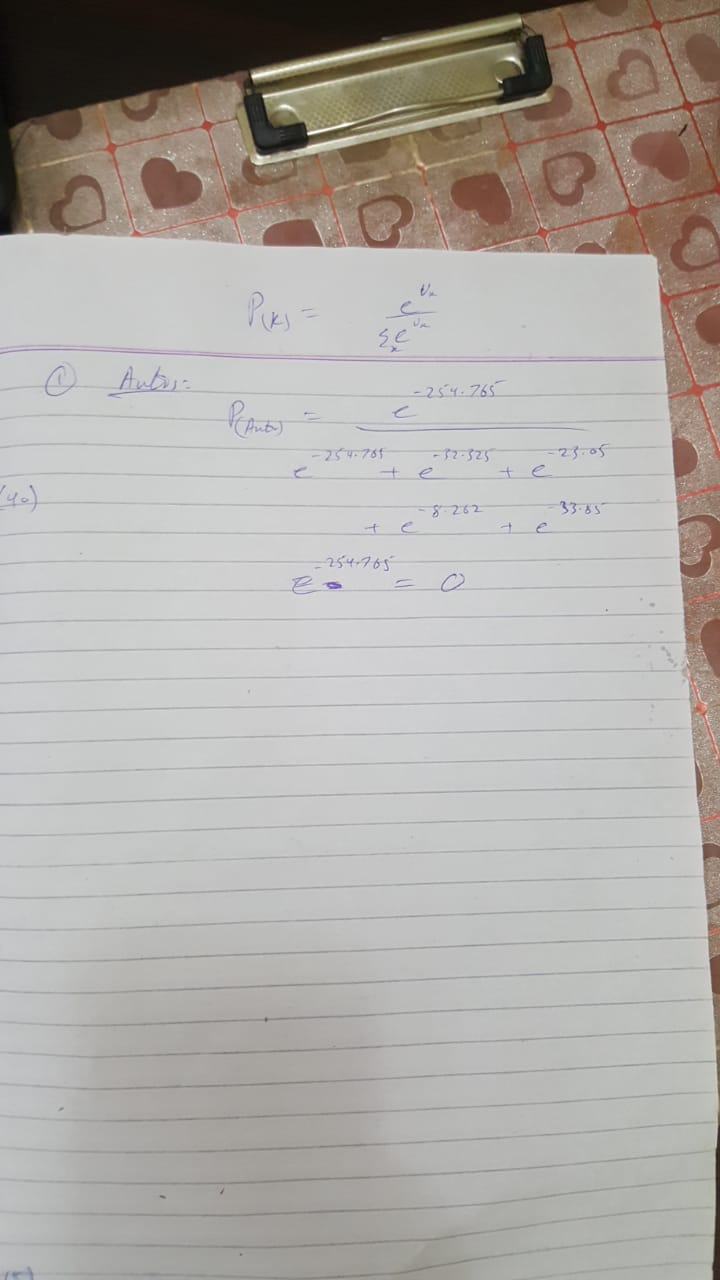 P(K) = e^Uₖ / Σₓ e^Uₖ
① Autos:-
P(Auto) = e^-254.765
e^-254.765 + e^-32.325 + e^-23.05
(40)
+ e^-8.262 + e^-33.85
e^-254.765 = 0